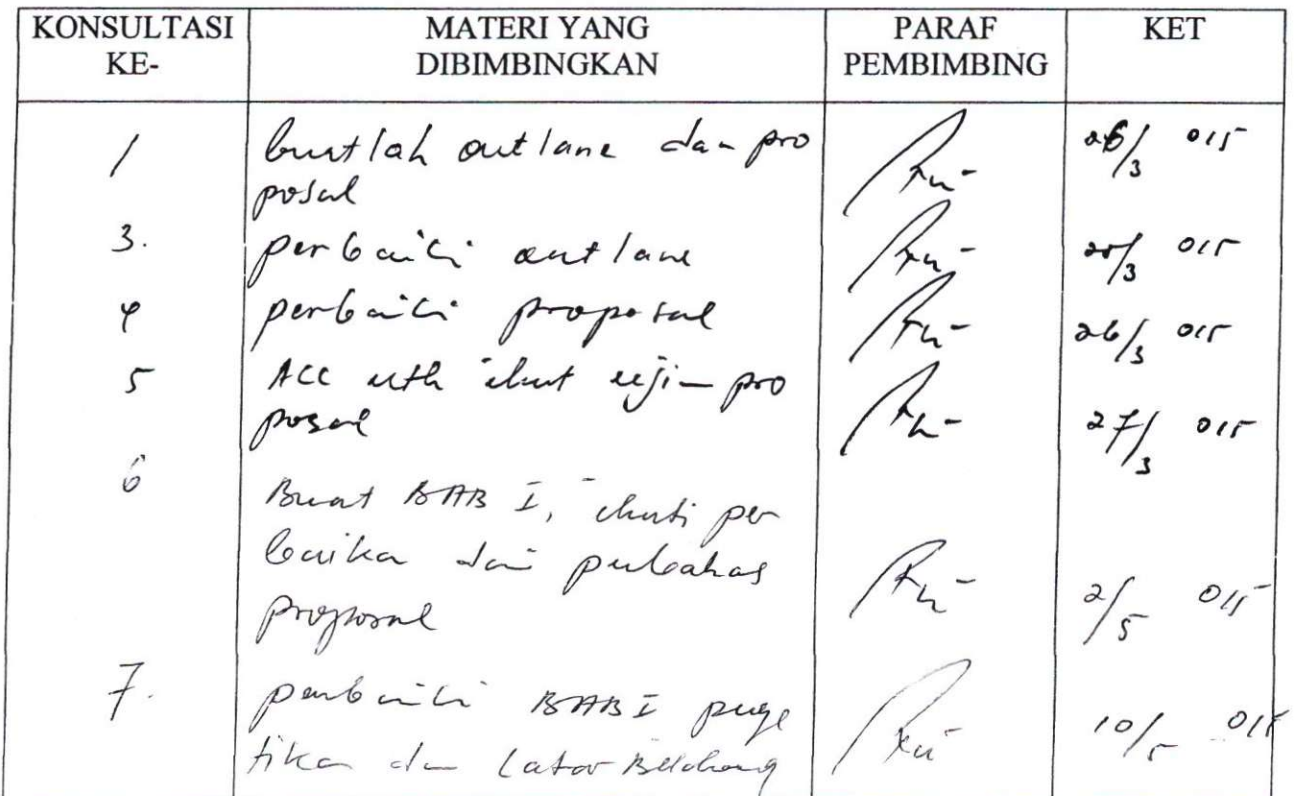 KONSULTASI KE- MATERI YANG DIBIMBINGKAN PARAF PEMBIMBING KET
1 buatlah outlane dan pro 26/3 015
posal
3. perbaiki outlane 25/3 015
4 perbaiki proposal 26/3 015
5 ACC utk ikut uji pro
posal 27/3 015
6 Buat BAB I, ikuti per
baika dari pembahas
proposal 2/5 015
7. perbaiki BAB I penge
tikan dan Latar Belakang 10/5 015